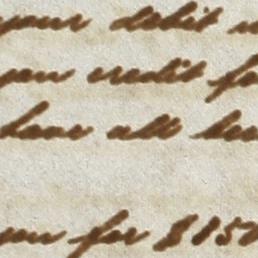 your debit
your credit
have all
you for $ 15